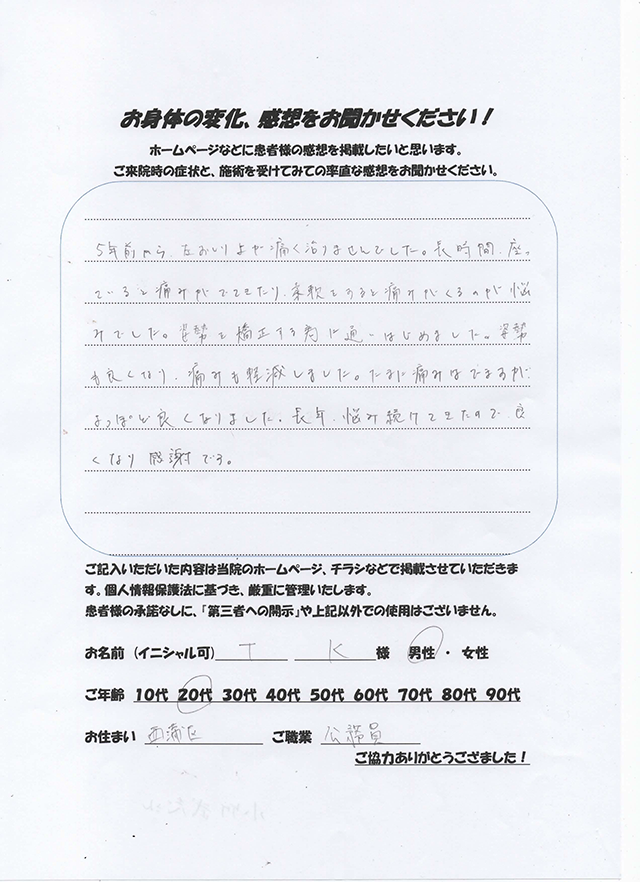 お身体の変化、感想をお聞かせください！
ホームページなどに患者様の感想を掲載したいと思います。
ご来院時の症状と、施術を受けてみての率直な感想をお聞かせください。
5年前から、左おしりよが痛く治りませんでした。長時間、座っ
ていると痛みがでてきたり、柔軟をすると痛みがくるのが悩
みでした。姿勢を矯正する為に通いはじめました。姿勢
も良くなり、痛みも軽減しました。たまに痛みはでますが
よっぽど良くなりました。長年、悩み続けてきたので、良
くなり感謝です。
ご記入いただいた内容は当院のホームページ、チラシなどで掲載させていただきま
す。個人情報保護法に基づき、厳重に管理いたします。
患者様の承諾なしに、「第三者への開示」や上記以外での使用はございません。
お名前（イニシャル可） T K 様 男性 ・ 女性
ご年齢 10代 20代 30代 40代 50代 60代 70代 80代 90代
お住まい 西蒲区 ご職業 公務員
ご協力ありがとうござまました！